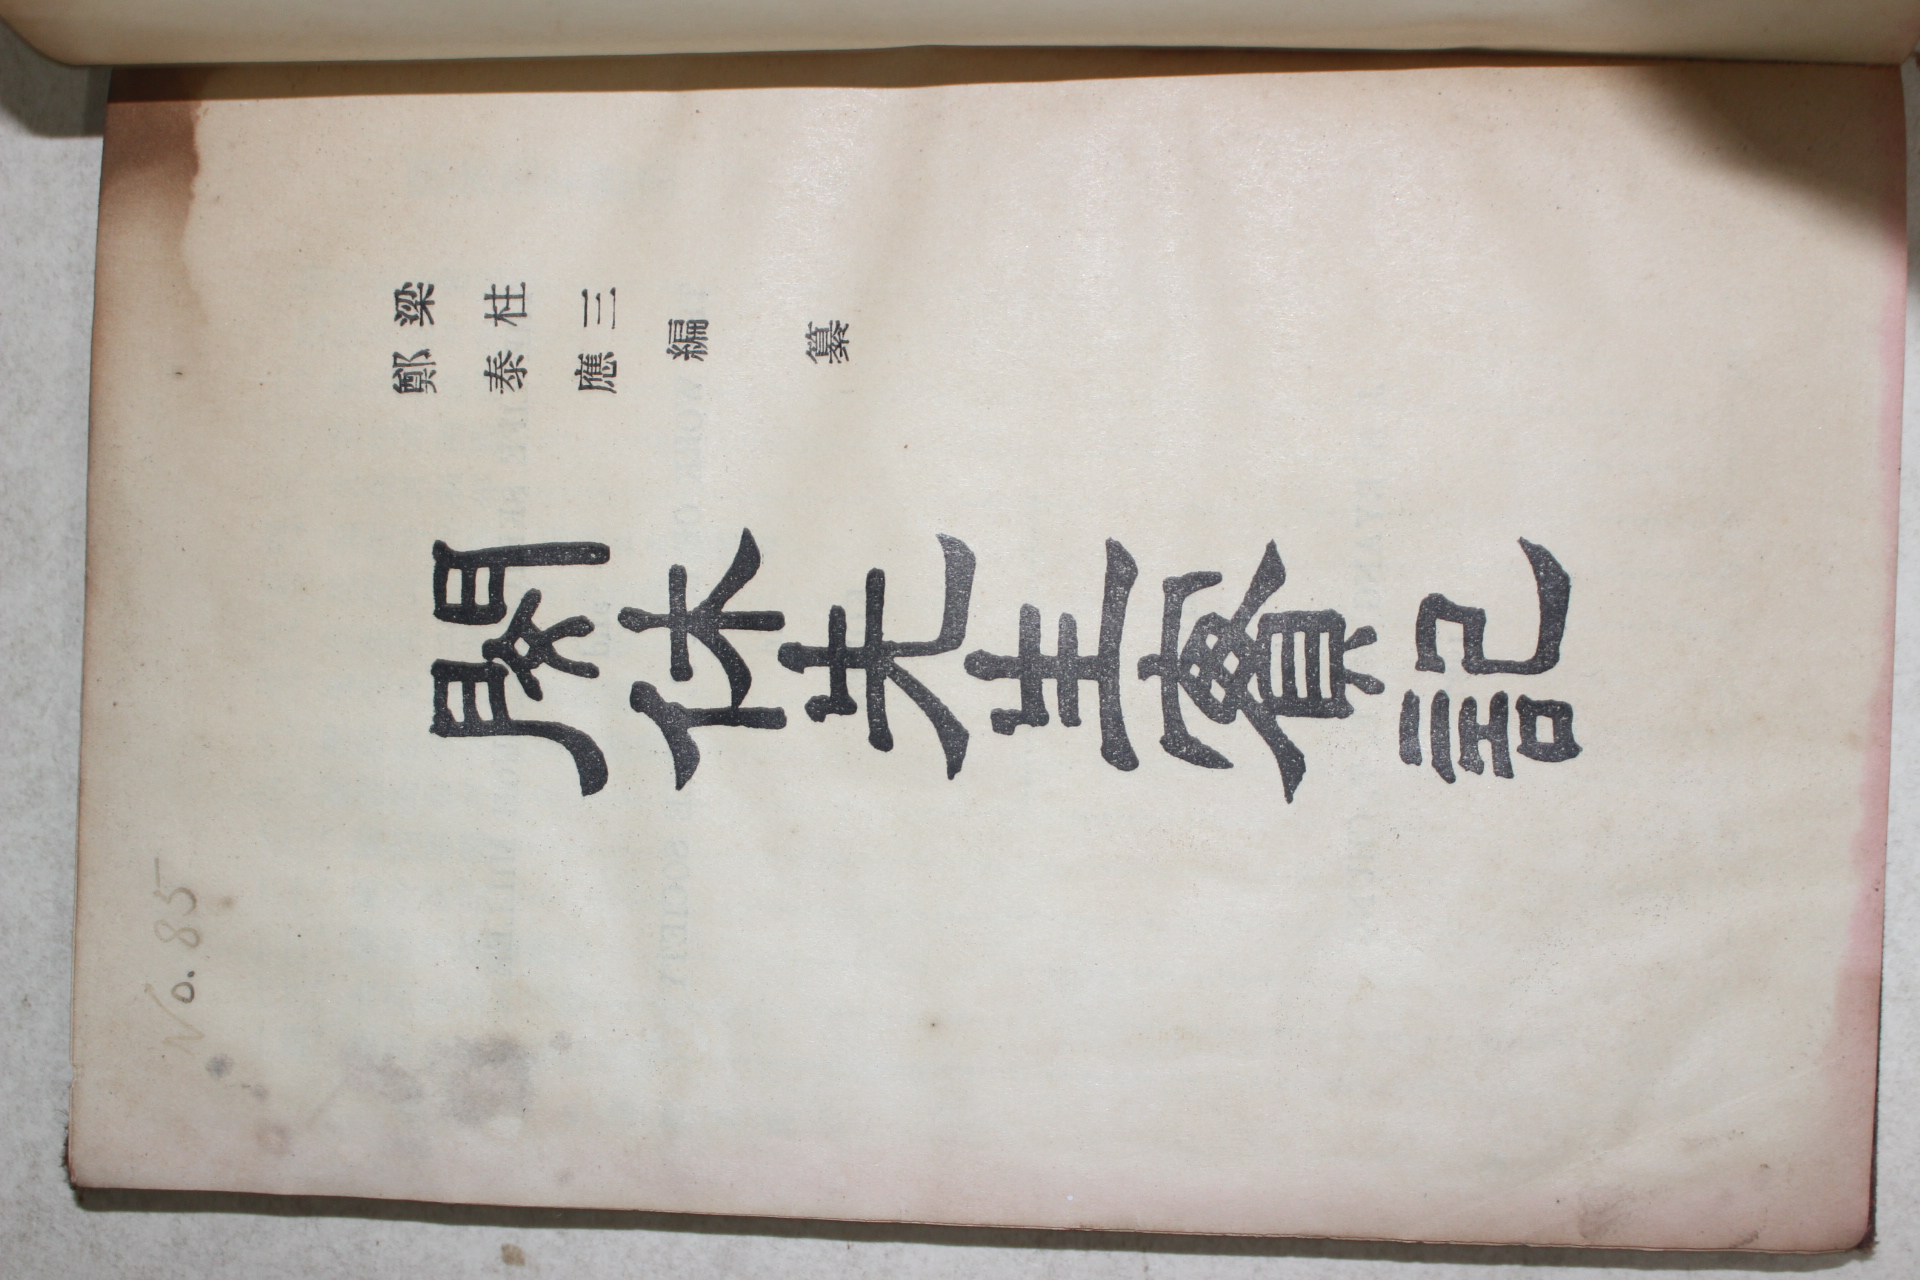 No. 85
梁柱三
鄭泰應
編纂
閔休先生實記